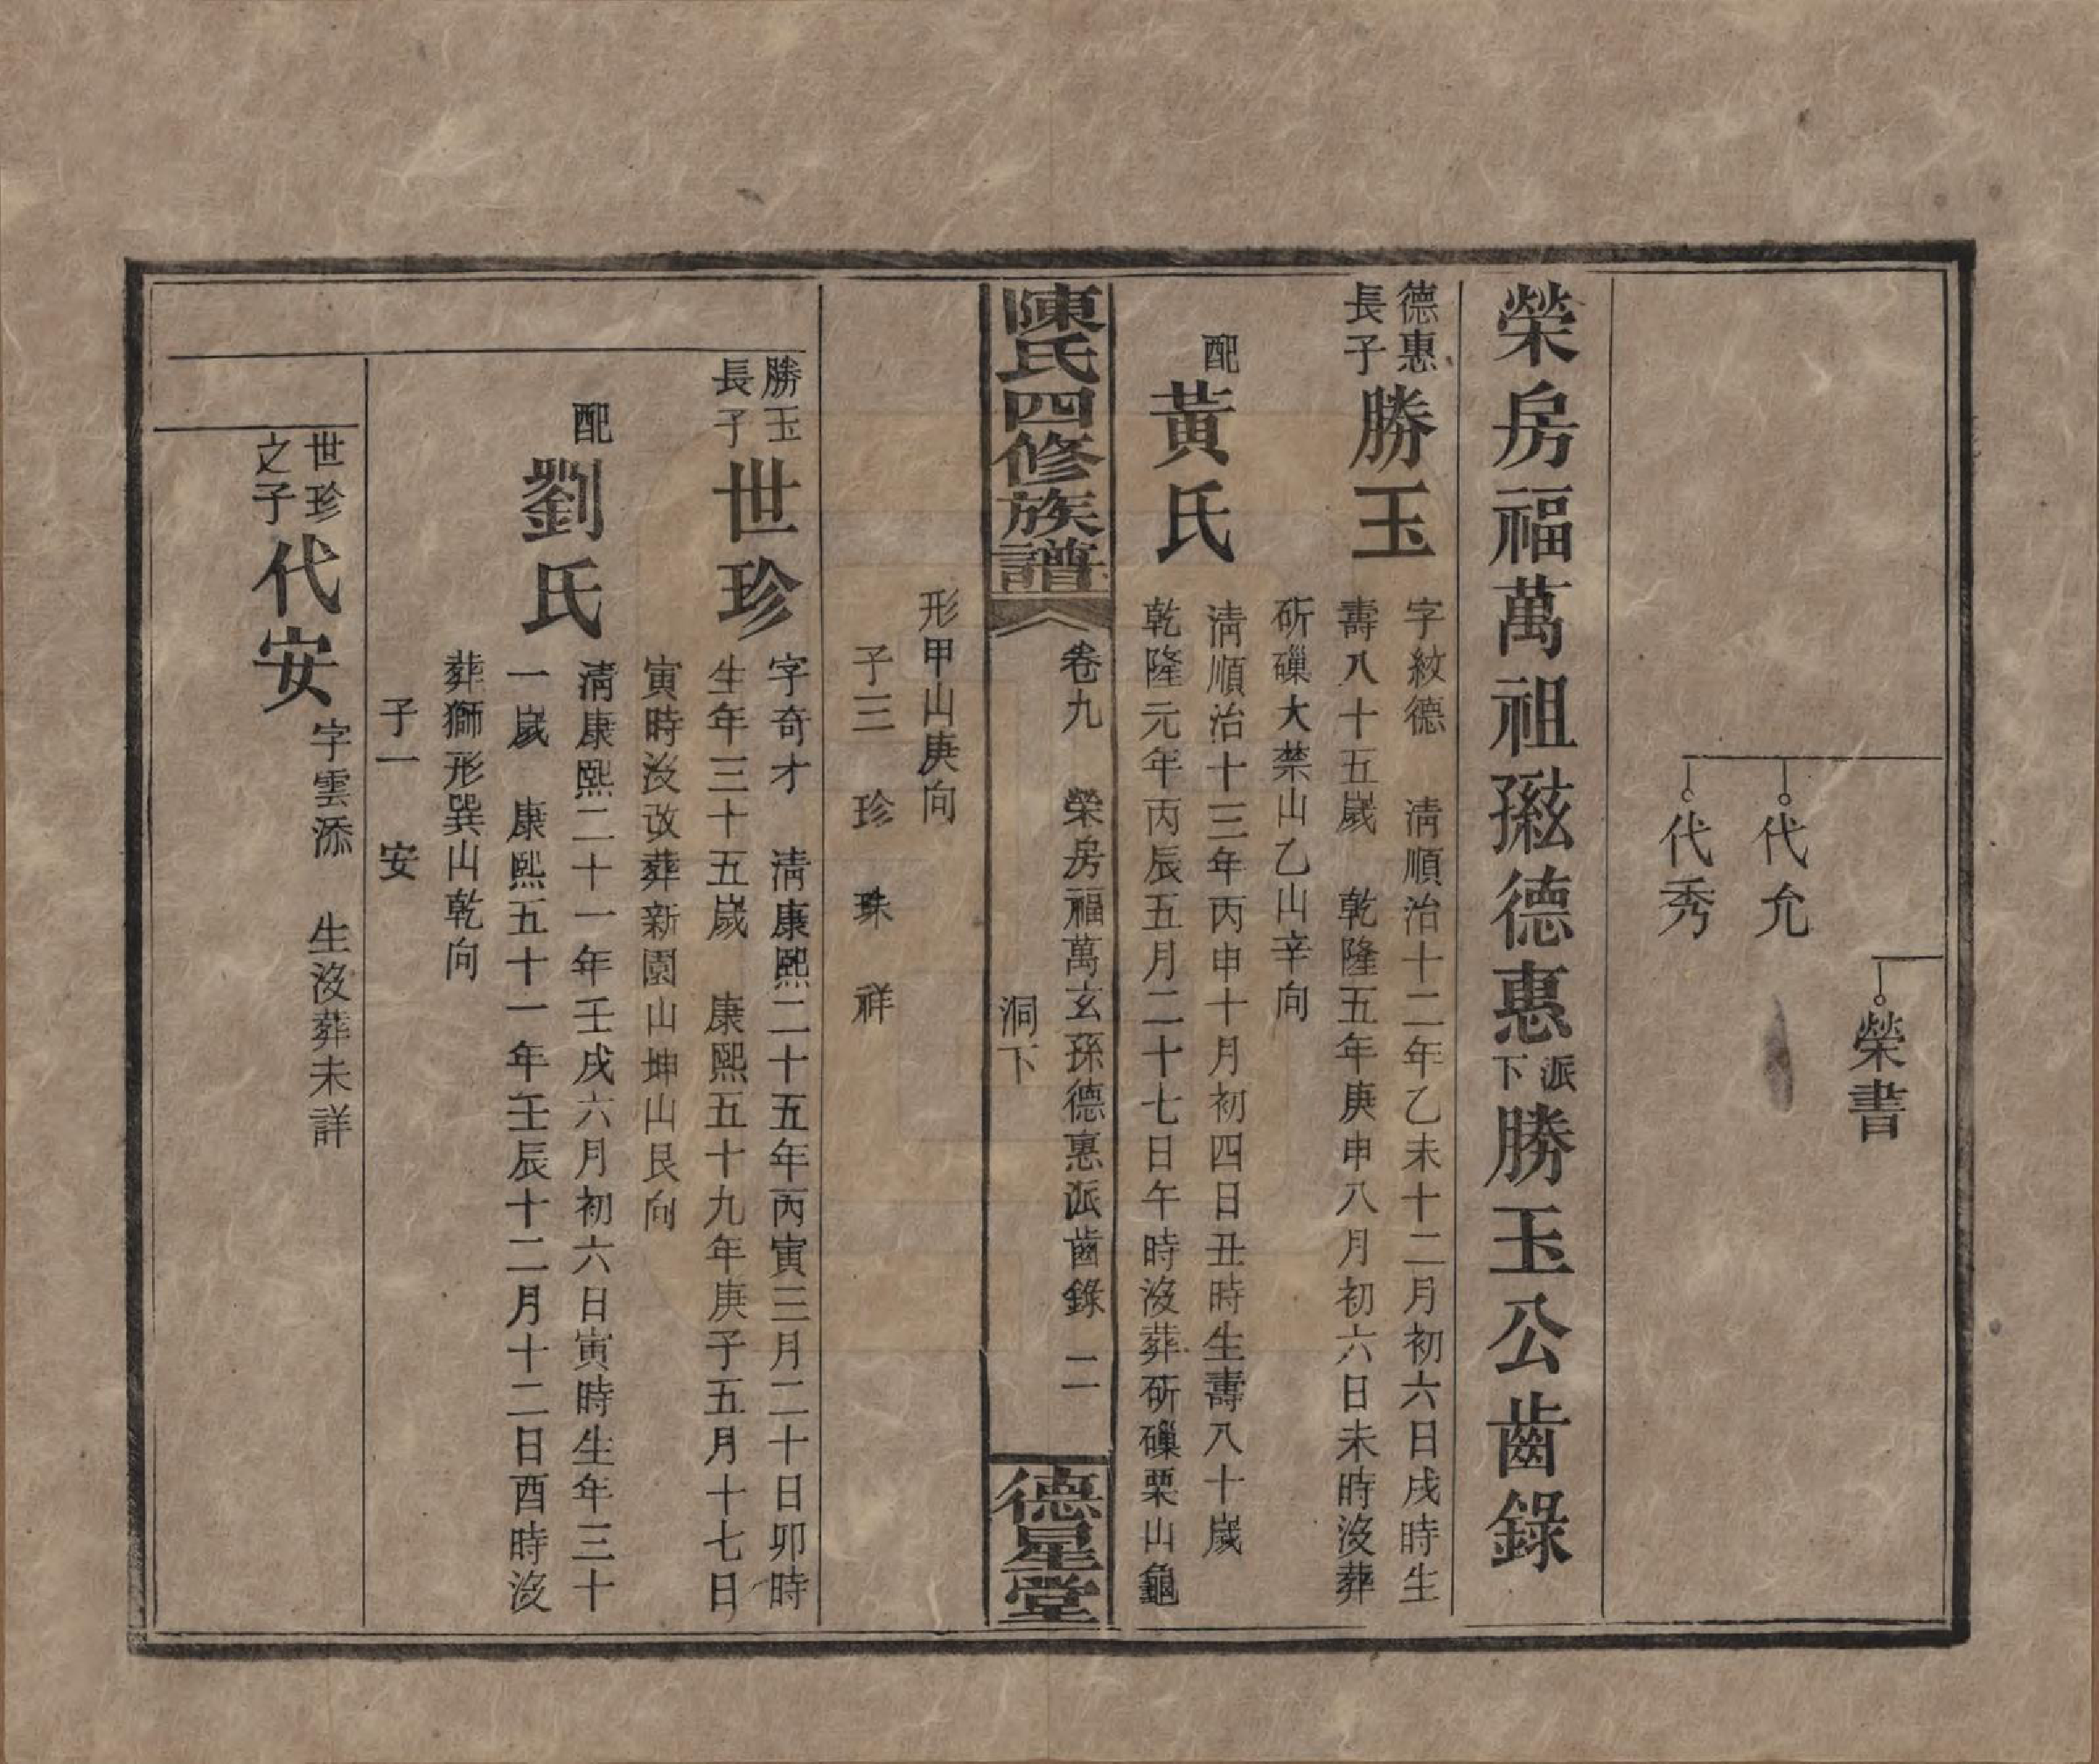 榮書
代允
代秀
榮房福萬祖䝒德惠派下勝玉公齒錄
德惠長子
勝玉
字紋德 清順治十二年乙未十二月初六日戌時生
壽八十五嵗 乾隆五年庚申八月初六日未時沒葬
斫磥大禁山乙山辛向
配
黃氏
清順治十三年丙申十月初四日丑時生壽八十嵗
乾隆元年丙辰五月二十七日午時沒葬斫磥栗山龜
陳氏四修族譜
卷九 榮房福萬玄孫德惠派齒錄 二
洞下
德星堂
形甲山庚向
子三 珍 珠 祥
勝玉長子
世珍
字奇才 清康熙二十五年丙寅三月二十日卯時
生年三十五嵗 康熙五十九年庚子五月十七日
寅時沒改葬新園山坤山艮向
配
劉氏
清康熙二十一年壬戌六月初六日寅時生年三十
一嵗 康熙五十一年壬辰十二月十二日酉時沒
葬獅形巽山乾向
子一 安
世珍之子
代安
字雲添 生沒葬未詳